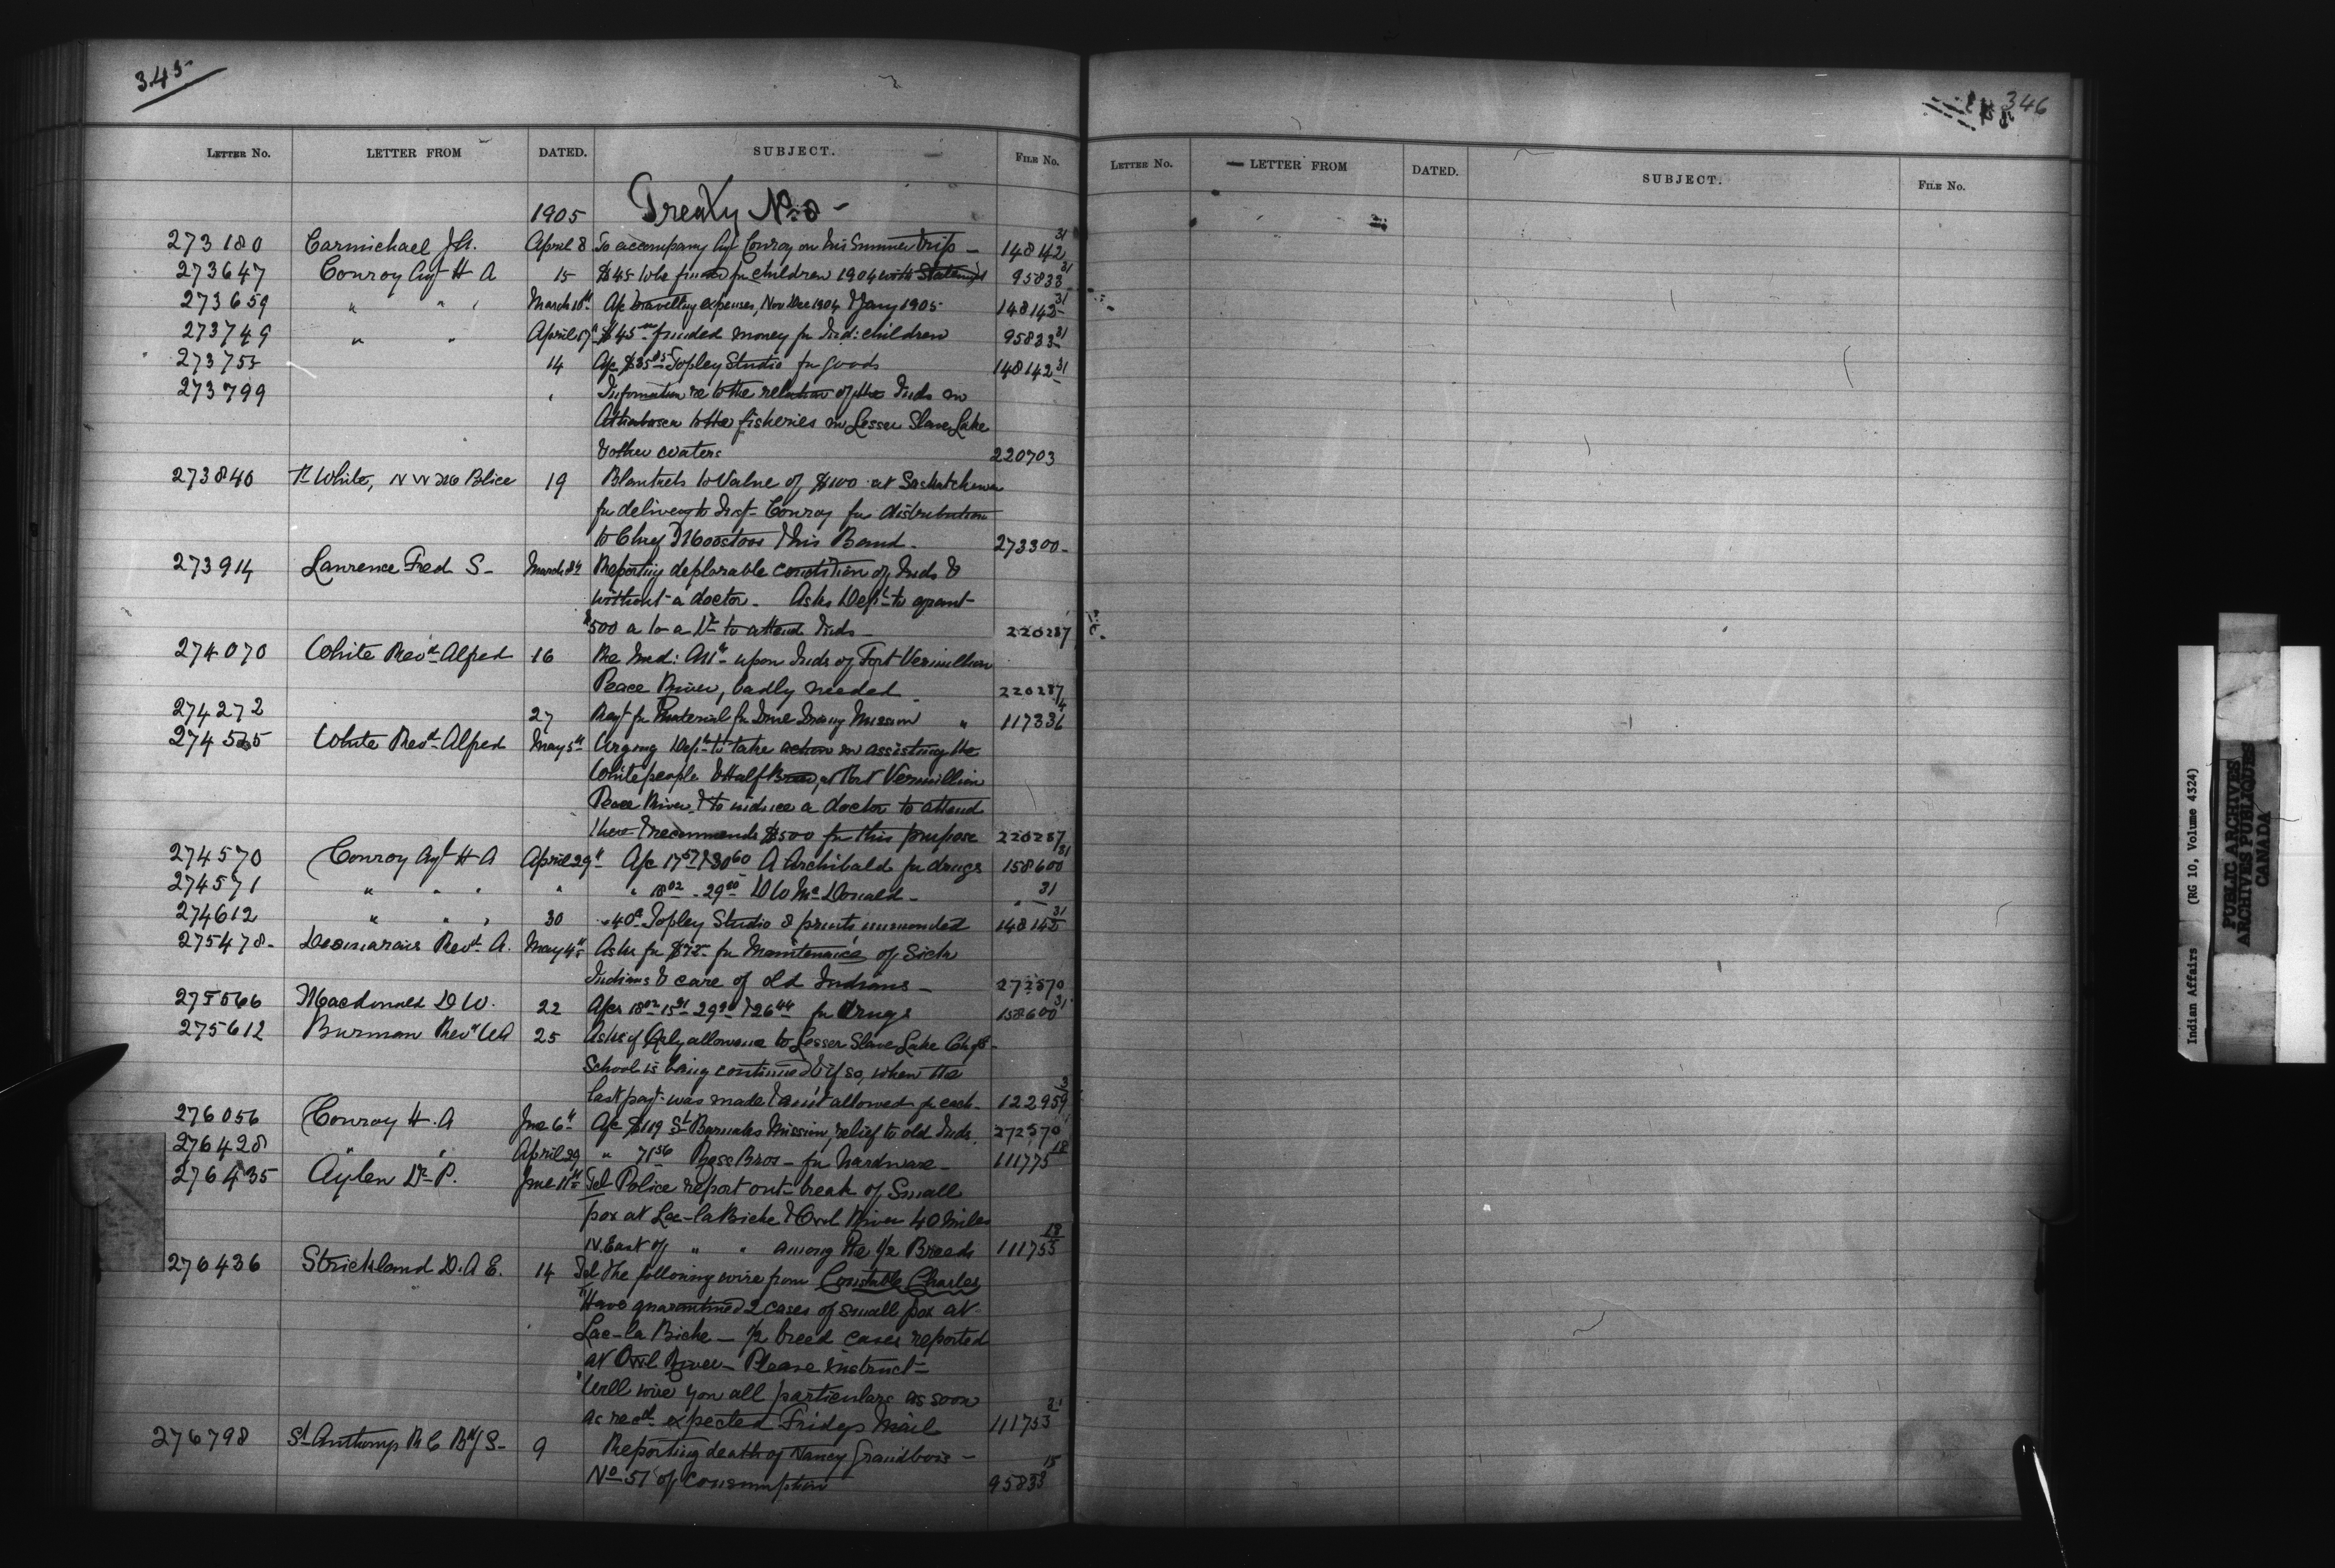 345
LETTER No. LETTER FROM DATED. SUBJECT. FILE No.
1905 Treaty No 8 -
273180 Carmichael J.A. April 8 To accompany Agt Conroy on his Summer trip - 148142 31
273647 Conroy Agt H A 15 $45 to be funded for children 1904 with Statements 95833 31
273659 " " " March 18th A/c travelling expenses, Nov Dec 1904 & Jany 1905 148142 31
273749 " " April 17th $45 funded money for Ind: children 95833 31
273755 14 A/c $35 Topley Studio for goods 148142 31
273799 " Information re to the relation of the Inds in
Athabasca to the fisheries in Lesser Slave Lake
& other waters 220703
273840 White, N W M Police 19 Blankets to Value of $100 at Saskatchewan
for delivery to Insp- Conroy for distribution
to Chief Moostoos & his Band - 273300 -
273914 Lawrence Fred S - March 8th Reporting deplorable condition of Inds &
without a doctor - Asks Dept to grant
$500 a to a Dr to attend Inds - 220287
274070 White Revd Alfred 16 Re Med: Attn upon Inds of Fort Vermillion
Peace River, badly needed 220287
274272 27 Reqt for Material for Mission " 117336
274535 White Revd Alfred May 5th Urging Dept to take action in assisting the
White people & Half Breeds, at Fort Vermillion
Peace River, & to induce a doctor to attend
there & recommends $500 for this purpose 220287
274570 Conroy Agt H A April 29th A/c 17 57 & 30 60 A Archibald for drugs 158600 31
274571 " " " " " 18 02 - 29 80 D W McDonald - " 31
274612 " " " 30 " 40 Topley Studio 8 prints unmounted 148142 31
275478 - Desmarais Revd A. May 4th Asks for $72 for Maintenance of Sick
Indians & care of old Indians - 272570
275566 Macdonald D W. 22 A/cs 18 02 15 29 & 26 44 for Drugs 158600 31
275612 Burman Revd W A 25 Asks if Qrly allowance to Lesser Slave Lake Ch of E -
School is being continued & if so, when the
last payt was made & amt allowed for each - 122959
276056 Conroy H. A June 6th A/c $119 St Barnabs Mission, relief to old Inds. 272570
276428 " " April 29 " 71 56 Ross Bros - for hardware - 111775 18
276435 Aylen Dr P. June 11th Tel Police report out-break of Small
pox at Lac-la Biche & Owl River 40 Miles
N. East of " " among the 1/2 Breeds 111755 18
276436 Strickland D. A E. 14 Tel The following wire from Constable Charles
"Have quarantined 2 cases of small pox at
Lac-la Biche - 1/2 breed cases reported
at Owl River - Please instruct -
"Will wire you all particulars as soon
as recd expected Fridays Mail 111753 21
276798 St Anthony R C Bdg S - 9 Reporting death of Nancy Grandbois -
No 51 of Consumption 95833 15
346
LETTER No. LETTER FROM DATED. SUBJECT. FILE No.
Indian Affairs (RG 10, Volume 4324)
PUBLIC ARCHIVES
ARCHIVES PUBLIQUES
CANADA